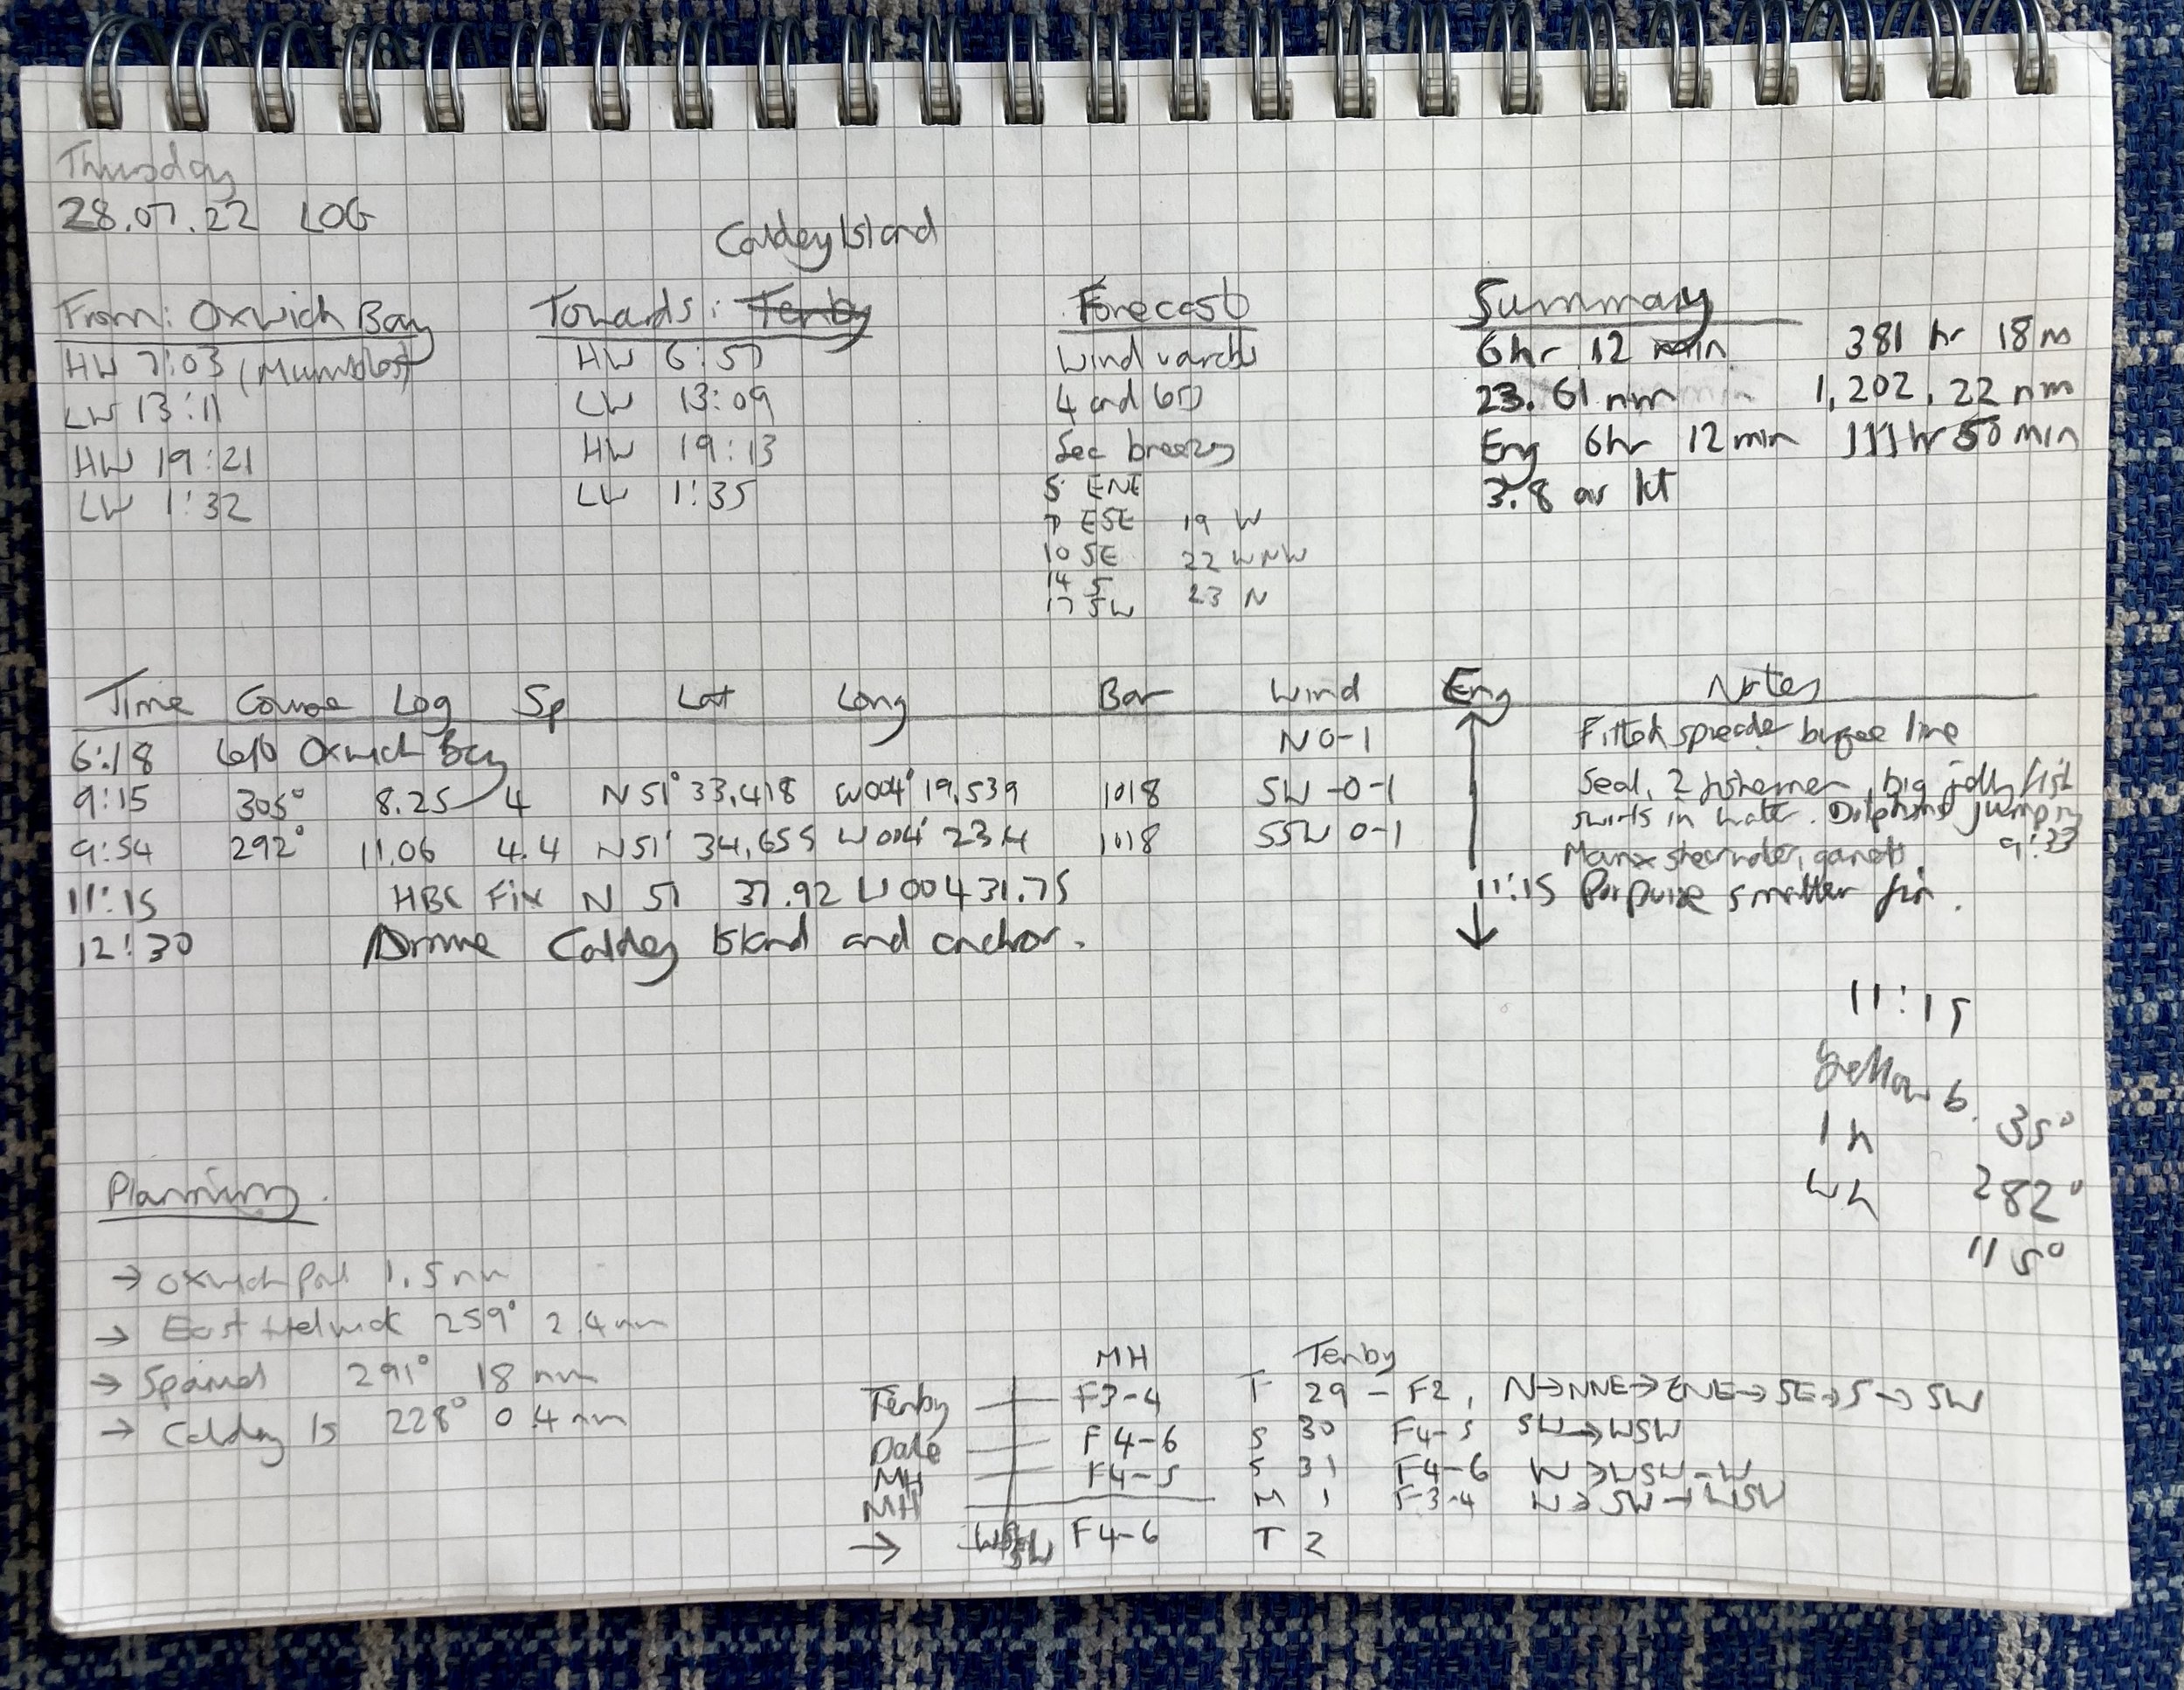 Thursday
28.07.22 LOG
Caldey Island
From: Oxwich Bay
HW 7:03 (Mumbles)
LW 13:11
HW 19:21
LW 1:32
Towards: Tenby
HW 6:57
LW 13:09
HW 19:13
LW 1:35
Forecast
Wind
4 and
Sea breezy
5 ENE
7 ESE 19 W
10 SE 22 WNW
14 S 23 N
17 SW
Summary
6hr 12 min 381 hr 18m
23.61 nm 1,202.22 nm
Eng 6hr 12min 111hr 50min
3.8 av kt
Time Course Log Sp Lat Long Bar Wind Eng Notes
6:18 Oxwich Bay N 0-1 Fitted spreader burgee line
9:15 305° 8.25 4 N51° 33.418 W004° 19.539 1018 SW-0-1 Seal, 2 fishermen, big jelly fish
swirls in water. Dolphins jumping
9:54 292° 11.06 4.4 N51° 34.655 W004° 23.4 1018 SSW 0-1 Manx shearwater, gannets. 9:33
11:15 HBC Fix N 51 37.92 W00431.75 11:15 Porpoise smaller fin.
12:30 Arrive Caldey Island and anchor.
11:15
Yellow b. 35°
1h 282°
Wh 115°
Planning.
→ Oxwich Point 1.5nm
→ East Helwick 259° 2.4nm
→ Spaniel 291° 18 nm
→ Caldey Is 228° 0.4nm
MH Tenby
Tenby F3-4 F 29 - F2, N→NNE→ENE→SE→S→SW
Dale F4-6 S 30 F4-5 SW→WSW
MH F4-5 S 31 F4-6 W→WSW-W
MH M 1 F3-4 W→SW→WSW
→ F4-6 T 2